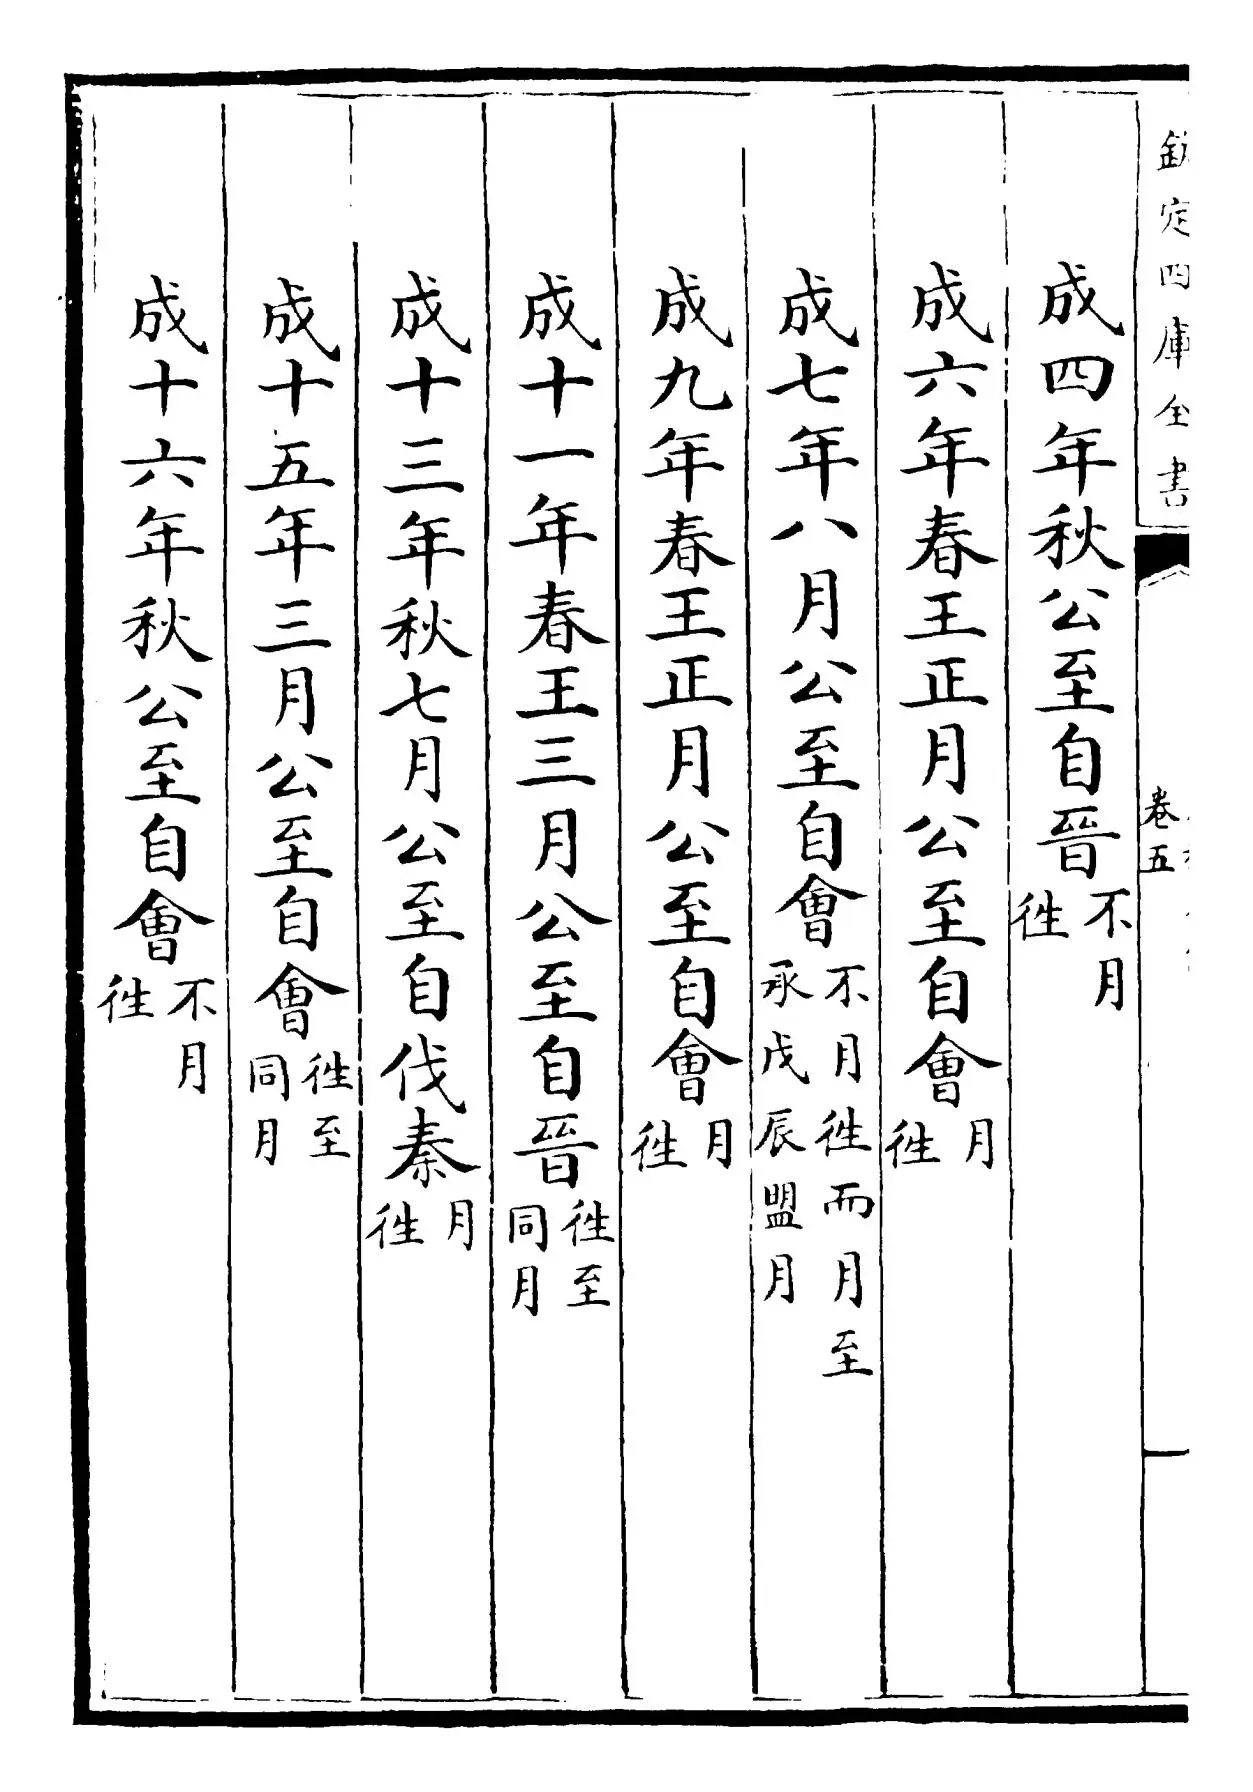 欽定四庫全書
卷五
成四年秋公至自晉不月徃
成六年春王正月公至自會月徃
成七年八月公至自會不月徃而月至承戊辰盟月
成九年春王正月公至自會月徃
成十一年春王三月公至自晉徃至同月
成十三年秋七月公至自伐秦月徃
成十五年三月公至自會徃至同月
成十六年秋公至自會不月徃